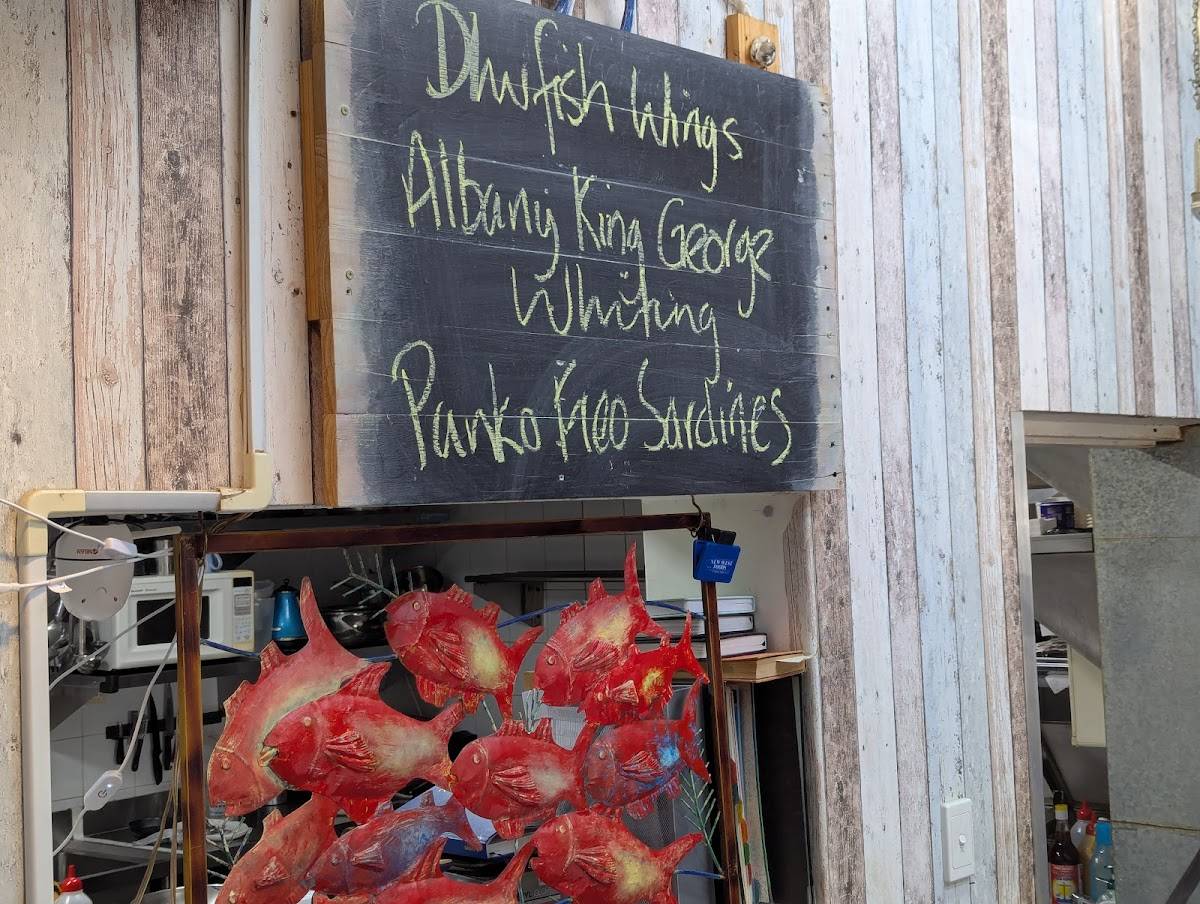 Dhufish Wings
Albany King George
Whiting
Panko Freo Sardines